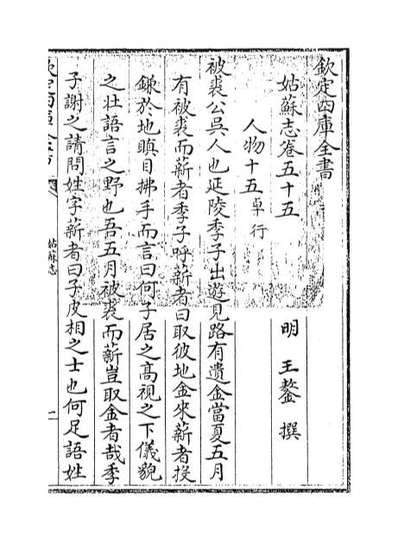 欽定四庫全書
姑蘇志卷五十五
明 王鏊 撰
人物十五 卓行
被裘公吳人也延陵季子出遊見路有遺金當夏五月
有被裘而薪者季子呼薪者曰取彼地金來薪者投
鎌於地瞋目拂手而言曰何子居之高視之下儀貌
之壯語言之野也吾五月被裘而薪豈取金者哉季
子謝之請問姓字薪者曰子皮相之士也何足語姓
欽定四庫全書
姑蘇志
一